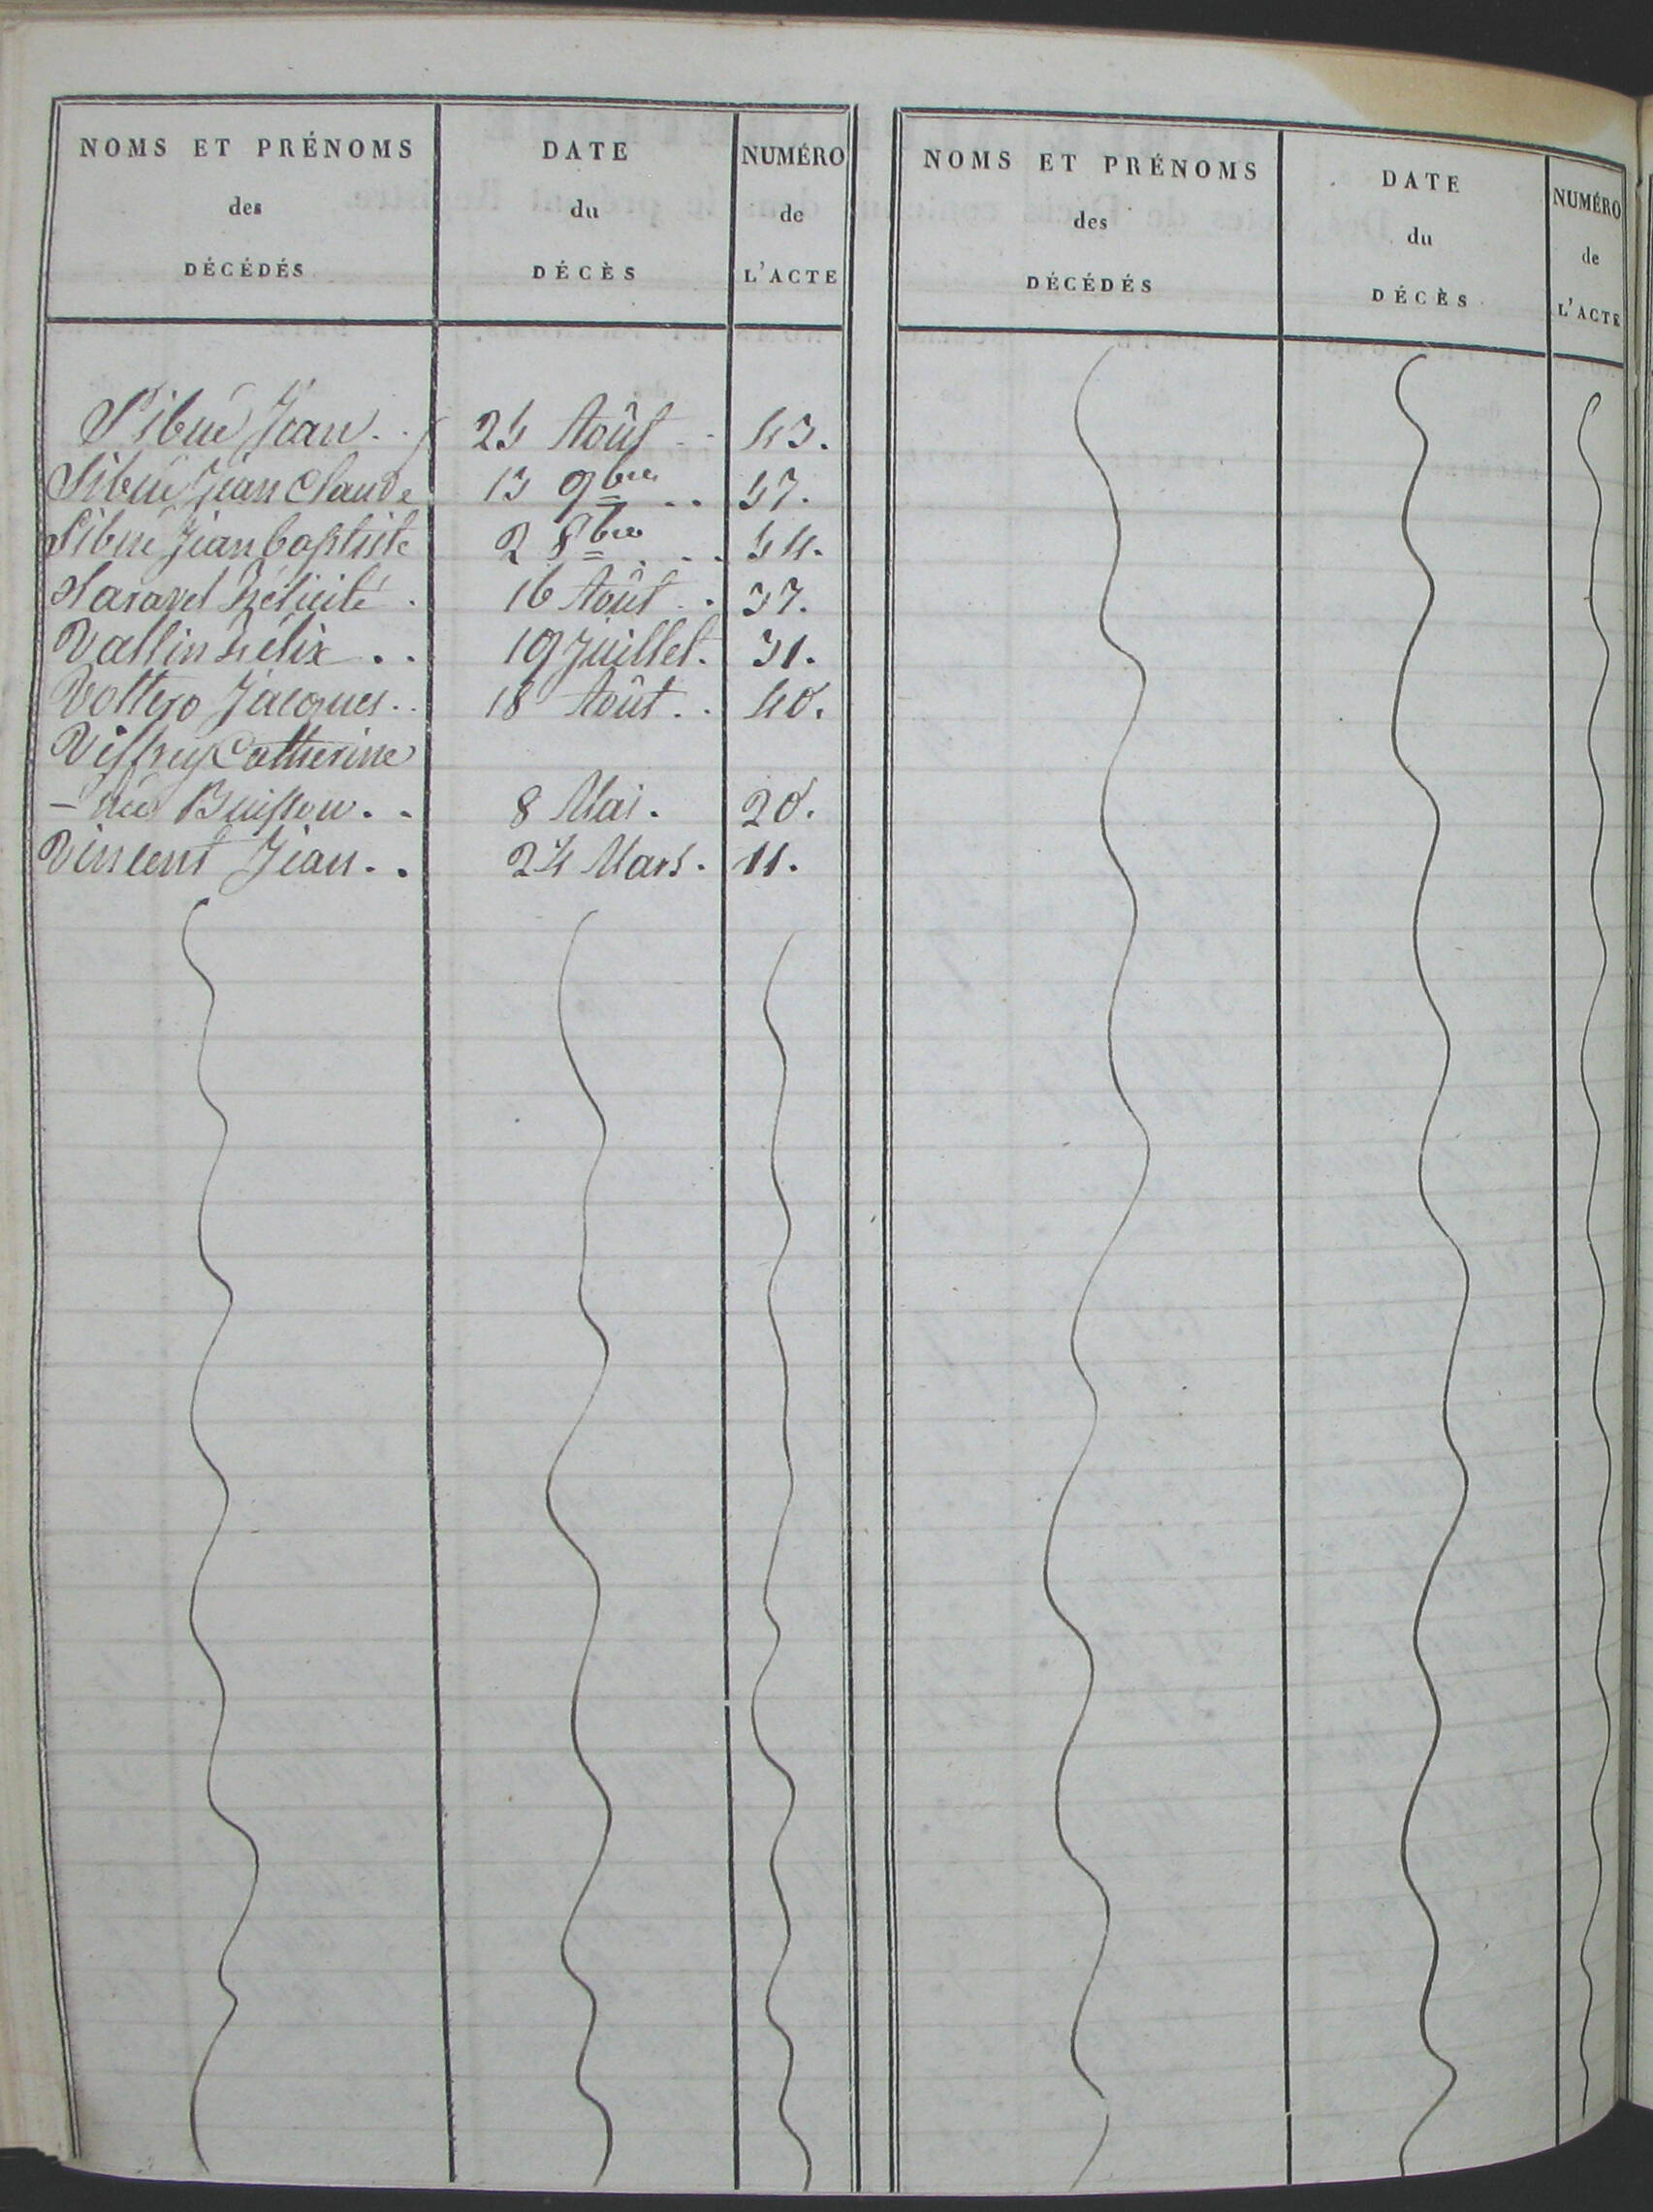 NOMS ET PRÉNOMS des DÉCÉDÉS DATE du DÉCÈS NUMÉRO de L'ACTE
Sibué Jean . . 24 Août . . 43.
Sibué Jean Claude 13 9bre . . 47.
Sibué Jean baptiste 2 8bre . . 44.
Taravel Félicité . 16 Août . . 37.
Vallin Félix . . 19 Juillet . 31.
Vottero Jacques . . 18 Août . . 40.
Viffrey Catherine
— née Buisson . . 8 Mai . 20.
Vincent Jean . . 24 Mars . 11.
NOMS ET PRÉNOMS des DÉCÉDÉS DATE du DÉCÈS NUMÉRO de L'ACTE